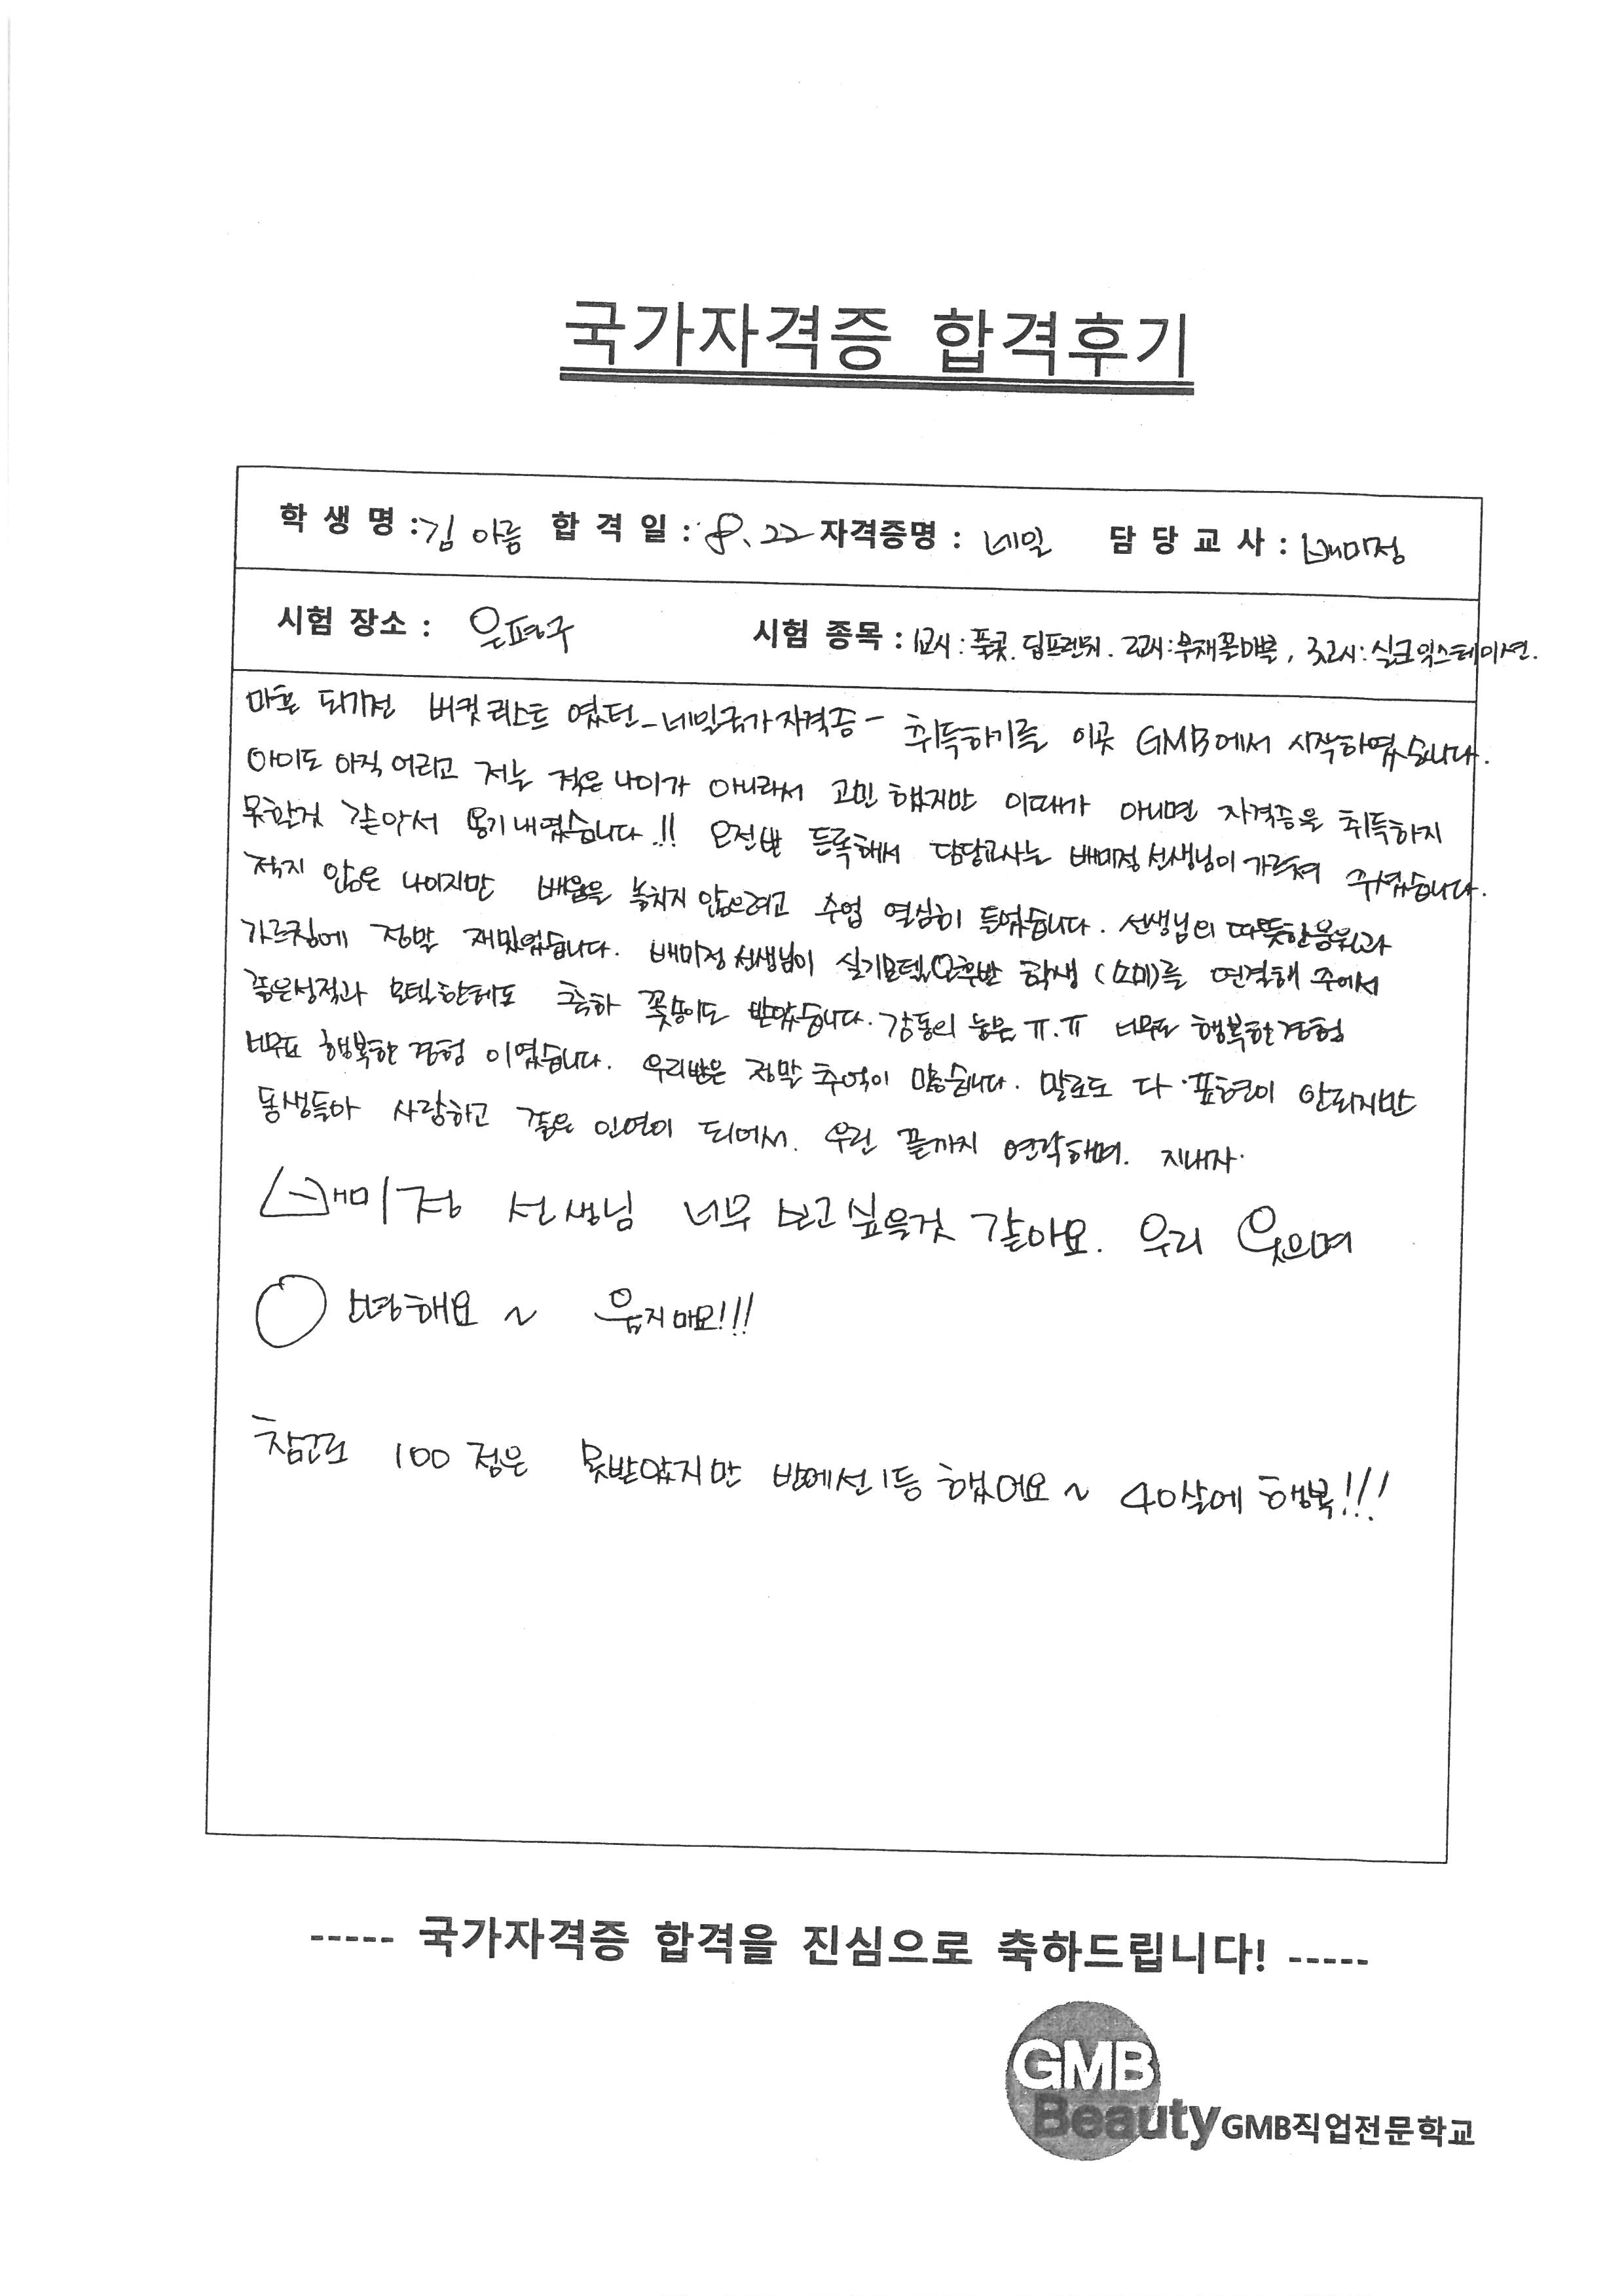 국가자격증 합격후기
학 생 명 : 김아름 합 격 일 : 8.22 자격증명 : 네일 담 당 교 사 : 배미정
시험 장소 : 은평구 시험 종목 : 1교시 : 풀콧. 딥프렌치. 2교시 : 부채꼴마블, 3교시 : 실크익스테이션.
마흔 되기전 버컷리스트 였던 - 네일국가자격증 - 취득하기를 이곳 GMB에서 시작하였습니다.
아이도 아직 어리고 저는 적은 나이가 아니라서 고민 했지만 이때가 아니면 자격증을 취득하지
못할것 같아서 용기내였습니다.!! 오전반 등록해서 담당교사는 배미정 선생님이 가르쳐 주셨습니다.
적지 않은 나이지만 배움을 놓치지 않으려고 수업 열심히 들었습니다. 선생님의 따뜻한 응원과
가르침에 정말 재밌었습니다. 배미정 선생님이 실기모델, 오후반 학생 (소미)를 연결해 주어서
좋은성적과 모델한테도 축하 꽃송이도 받았습니다. 감동의 눈물 ㅠ.ㅠ 너무도 행복한 경험
너무도 행복한 경험 이였습니다. 우리반은 정말 추억이 많습니다. 말로도 다 표현이 안되지만
동생들아 사랑하고 좋은 인연이 되어서. 우린 끝까지 연락하며. 지내자.
배미정 선생님 너무 보고싶을것 같아요. 우리 웃으며
안녕해요 ~ 울지마요!!!
참고로 100점은 못받았지만 반에선 1등 했어요 ~ 40살에 행복!!!
----- 국가자격증 합격을 진심으로 축하드립니다! -----
GMB
Beauty GMB직업전문학교